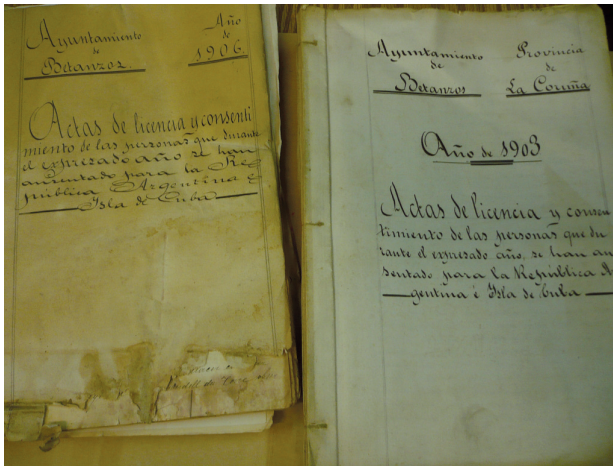 Ayuntamiento
de
Betanzos.
Año
de
1906.
Actas de licencia y consenti
miento de las personas que durante
el expresado año se han
ausentado para la Re
pública Argentina e
Isla de Cuba
Ayuntamiento
de
Betanzos
Provincia
de
La Coruña
Año de 1903
Actas de licencia y consen
timiento de las personas que du
rante el expresado año, se han au
sentado para la República Ar
gentina é Isla de Cuba